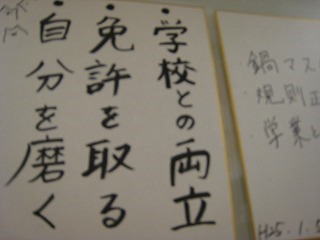 ・学校との両立
・免許を取る
・自分を磨く
鍋マス
・規則正
・学業と
H25.1.5